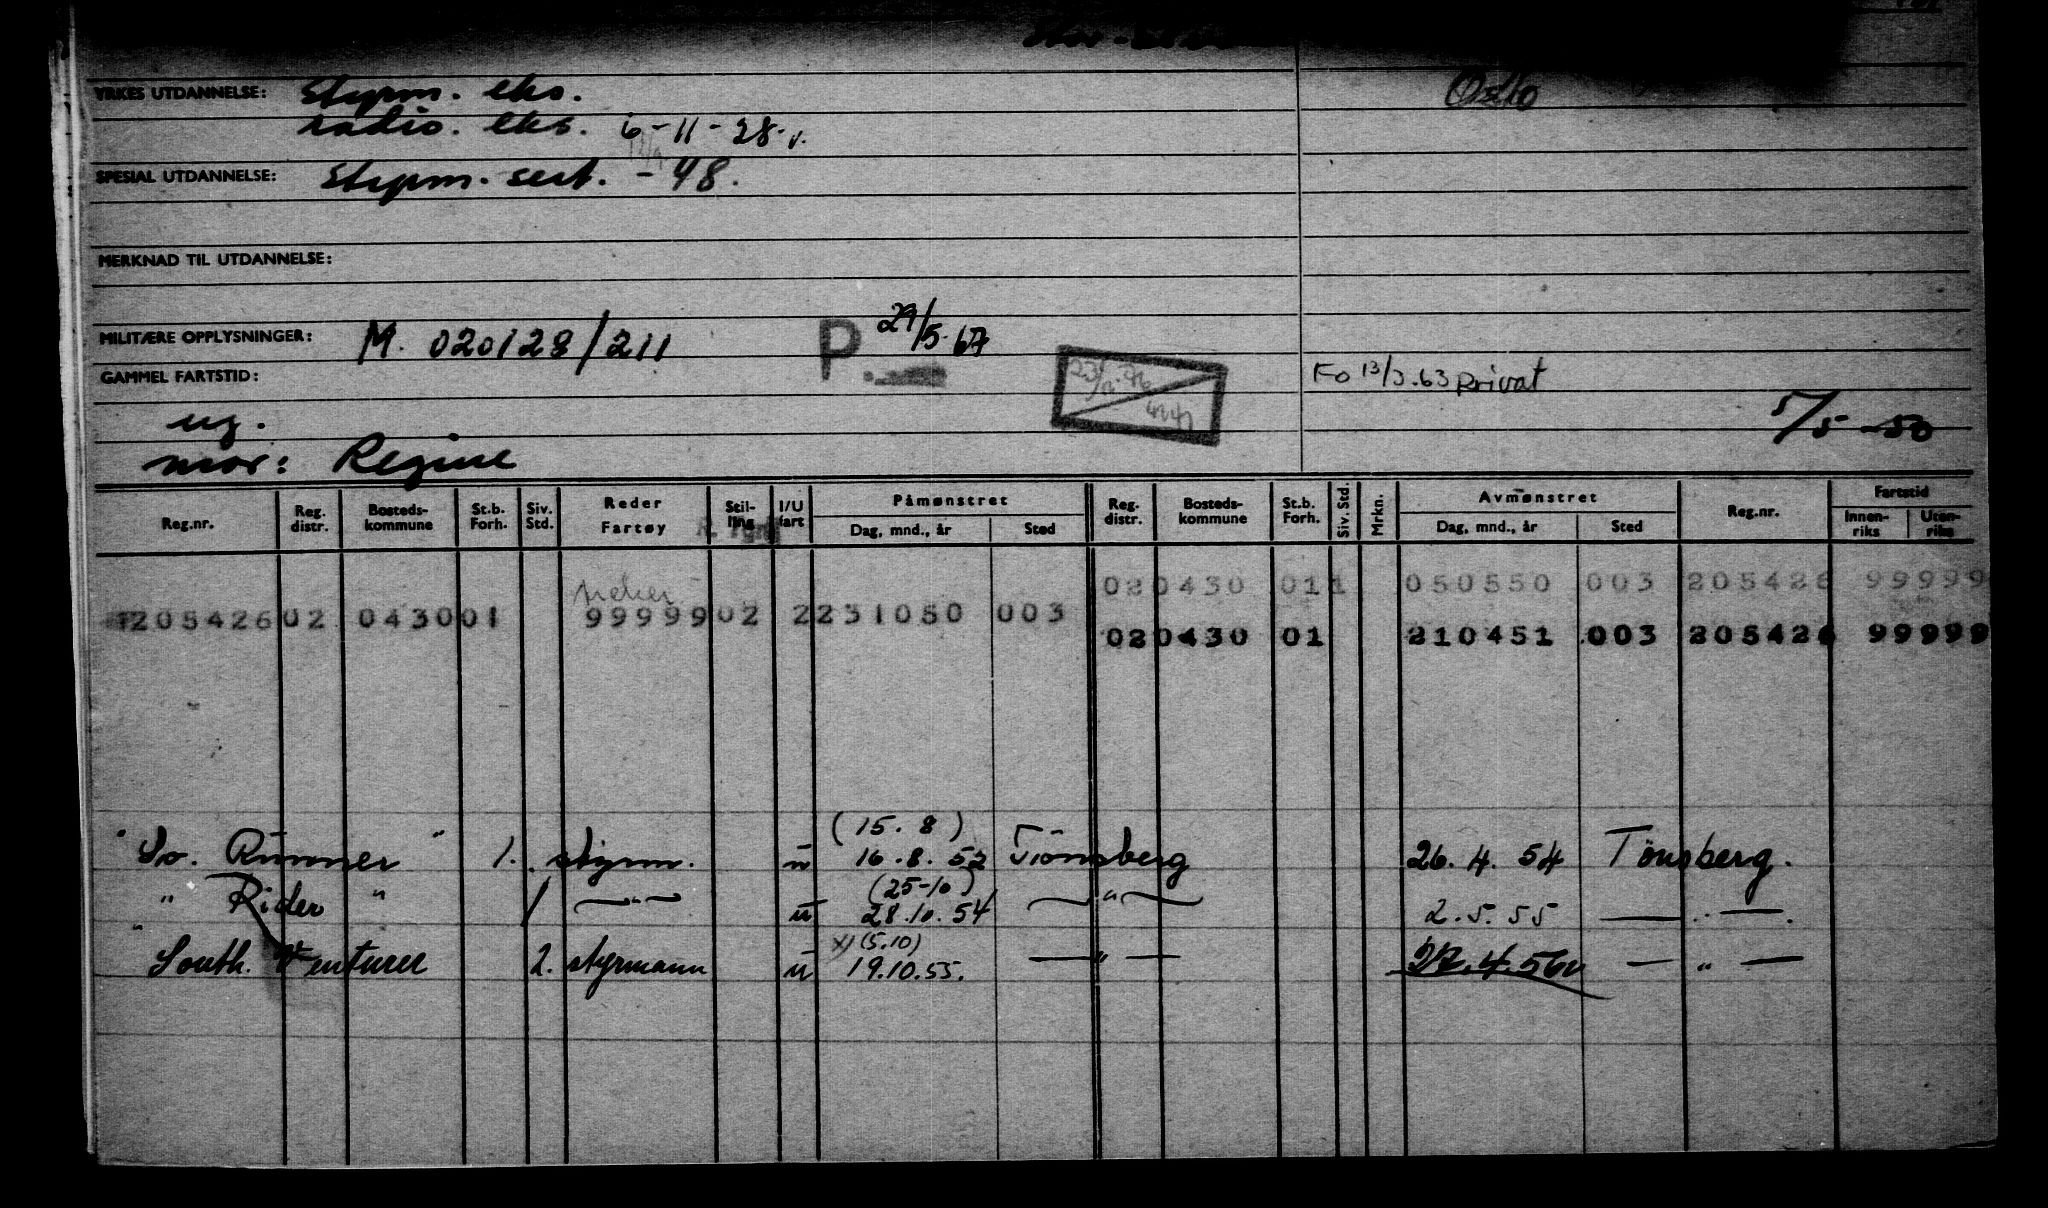 Oslo
YRKES UTDANNELSE: Styrm. eks.
radio. eks. 6-11-28.
SPESIAL UTDANNELSE: Styrm. sert. - 48.
MERKNAD TIL UTDANNELSE:
MILITÆRE OPPLYSNINGER: M. 020128/211 P 29/5.67
GAMMEL FARTSTID: Fo 13/3.63 Privat
ug. 5/5-50
mor: Regine
Reg.nr. Reg. distr. Bosteds-kommune St.b. Forh. Siv. Std. Reder Fartøy Stil-ling I/U fart Påmønstret Dag, mnd., år Sted Reg. distr. Bosteds-kommune St.b. Forh. Siv. Std. Mrkn. Avmønstret Dag, mnd., år Sted Reg.nr. Fartstid Innen-riks Uten-riks
020430 011 050550 003 205426 99999
205426 02 0430 01 99999 02 2 231050 003
020430 01 210451 003 205426 99999
(15. 8)
" So. Runner " 1. styrm. u 16.8.53 Tönsberg 26.4.54 Tönsberg.
(25-10)
" Rider " 1 — " — u 28.10.54 — " — 2.5.55 — " —.
(5.10)
" South. Venturer 2. styrmann u 19.10.55. — " — 27.4.56 — " —